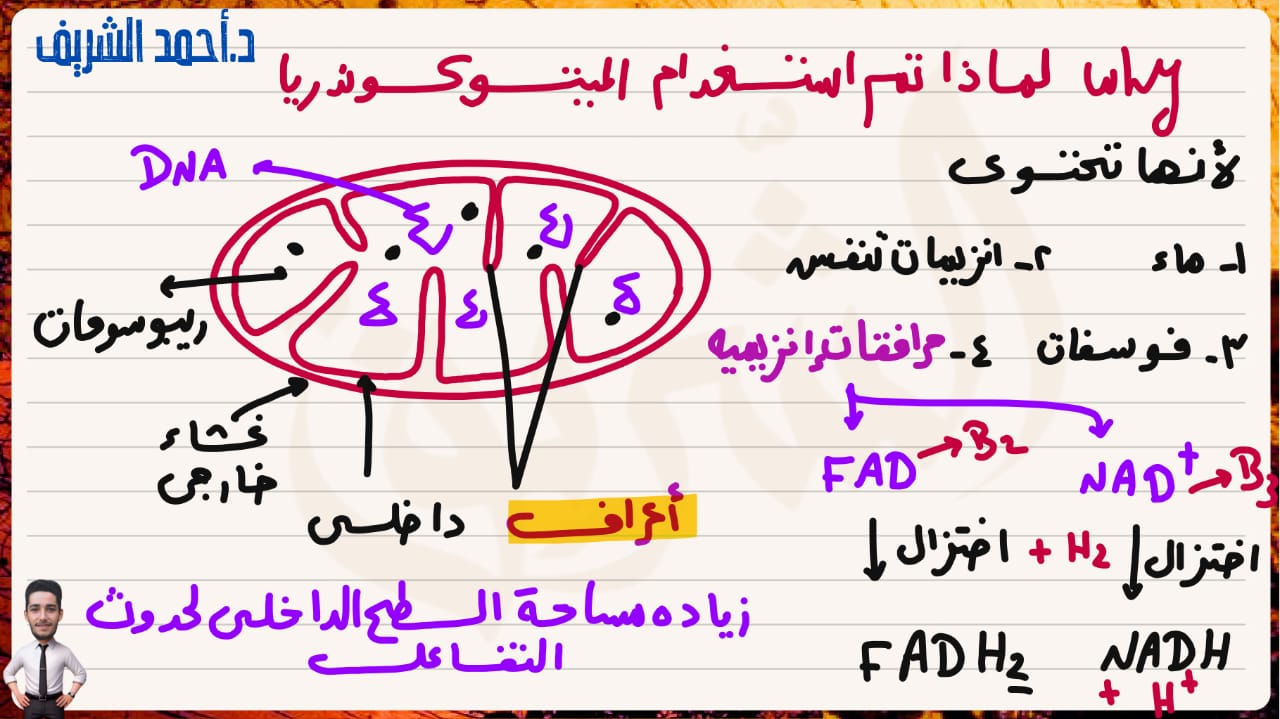 د.أحمد الشريف
why لماذا تم استخدام الميتوكوندريا
لأنها تحتوى
١- ماء ٢- انزيمات تنفس
٣- فوسفات ٤- مرافقات إنزيميه
NAD+ → B3
FAD → B2
اختزال + H2 اختزال
NADH + H+
FADH2
DNA
ريبوسومات
غشاء
خارجى
داخلى
أعراف
زياده مساحة السطح الداخلى لحدوث
التفاعل